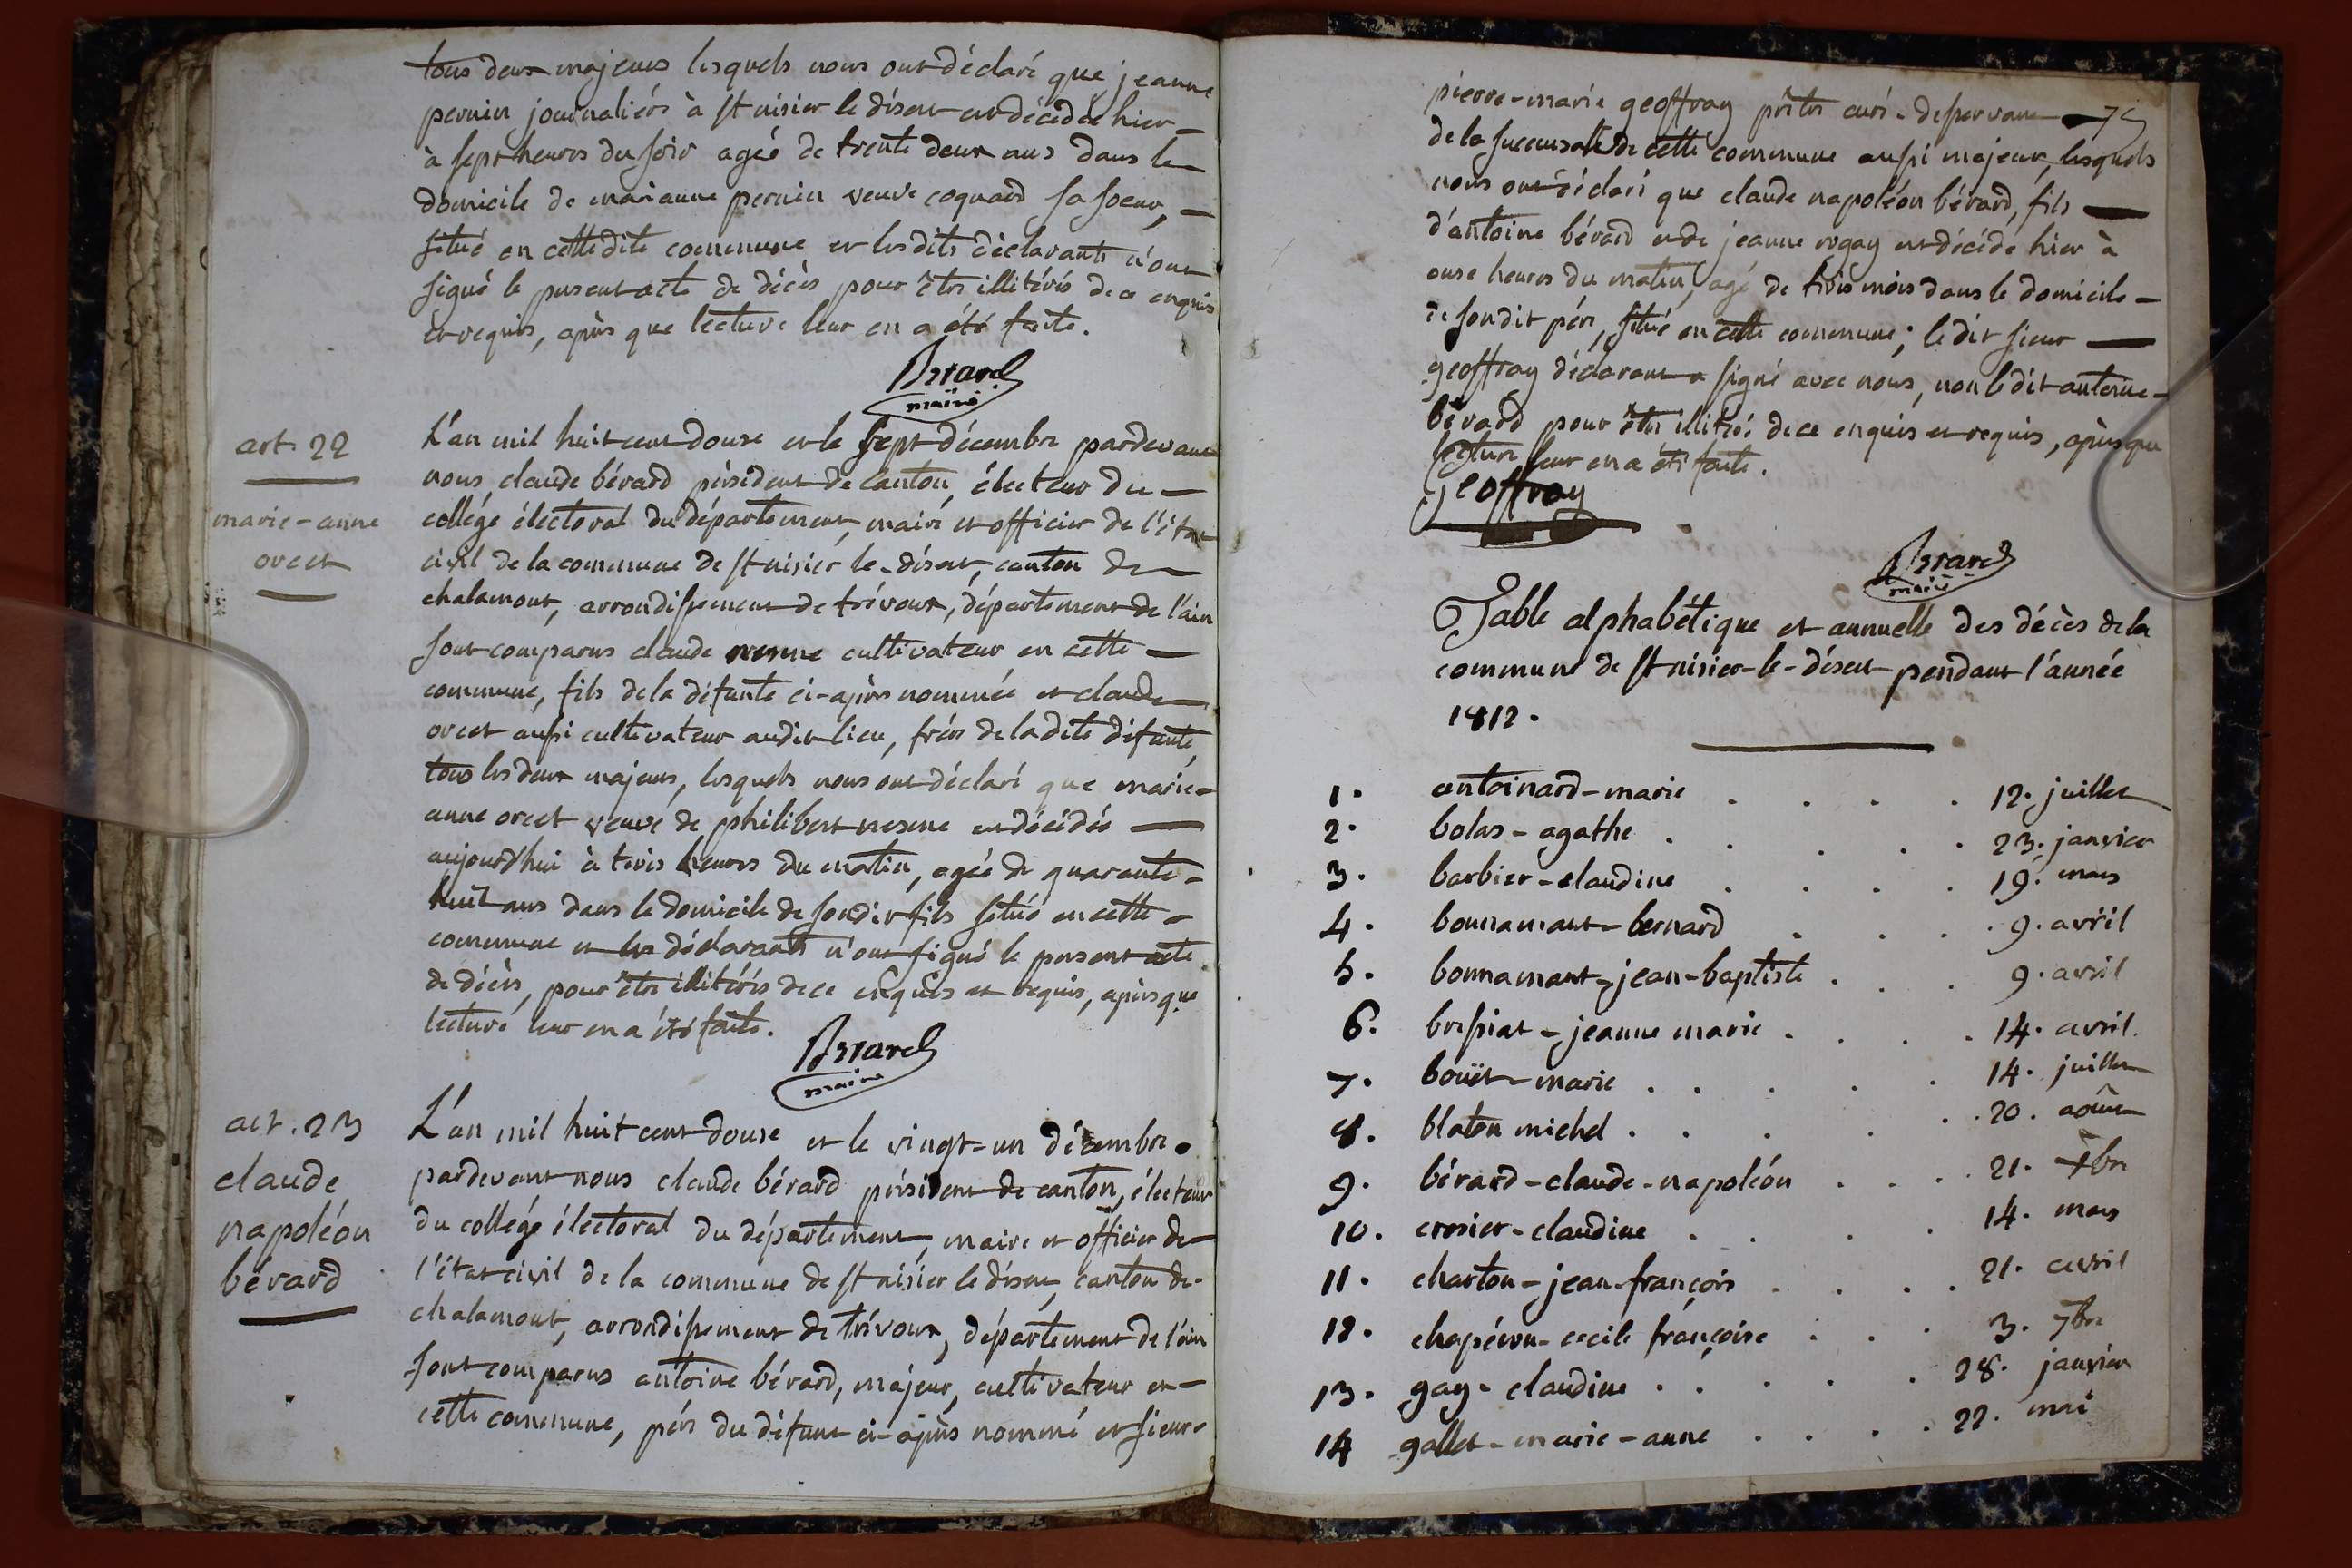 tous deux majeurs lesquels nous ont déclaré que jeanne
pernin journalière à st nisier le désert est décédée hier
à sept heures du soir agée de trente deux ans dans le
domicile de marianne pernin veuve coquard sa soeur,
situé en cette dite commune et lesdits déclarants n'ont
signé le present acte de décès pour être illitérés de ce enquis
et requis, après que lecture leur en a été faite.
Bérard
maire
art. 22
marie-anne
orcet
L'an mil huit cent douze et le sept décembre pardevant
nous claude bérard président de canton, électeur du
collége électoral du département, maire et officier de l'état
civil de la commune de st nisier le-désert, canton de
chalamont, arrondissement de trévoux, département de l'ain
sont comparus claude nesme cultivateur en cette
commune, fils de la défunte ci-après nommée et claude
orcet aussi cultivateur audit lieu, frère de ladite défunte,
tous les deux majeurs, lesquels nous ont déclaré que marie-
anne orcet veuve de philibert nesme est décédée
aujourd'hui à trois heures du matin, agée de quarante-
huit ans dans le domicile de son dit fils situé en cette
commune et les déclarants n'ont signé le present acte
de décès, pour être illitérés de ce enquis et requis, après que
lecture leur en a été faite.
Bérard
maire
art. 23
claude
napoléon
bérard
L'an mil huit cent douze et le vingt-un décembre
pardevant nous claude bérard président de canton, électeur
du collége électoral du département, maire et officier de
l'état civil de la commune de st nisier le désert, canton de
chalamont, arrondissement de trévoux, département de l'ain
sont comparus antoine bérard, majeur, cultivateur en
cette commune, père du défunt ci-après nommé et sieur
pierre-marie geoffray prêtre curé-desservant 75
de la succursale de cette commune aussi majeur, lesquels
nous ont déclaré que claude napoléon bérard, fils
d'antoine bérard et de jeanne est décédé hier à
onze heures du matin, agé de trois mois dans le domicile
de sondit père, situé en cette commune; ledit sieur
geoffray déclarant a signé avec nous, non ledit antoine
bérard pour être illitéré de ce enquis et requis, après que
lecture leur en a été faite.
Geoffray
Bérard
maire
Table alphabétique et annuelle des décès de la
commune de st nisier-le-désert pendant l'année
1812.
1. antoinard-marie . . . . 12. juillet
2. bolas-agathe . . . . . 23. janvier
3. barbier-claudine . . . . 19. mars
4. bonnamant-bernard . . . . 9. avril
5. bonnamant-jean-baptiste . . . 9. avril
6. bressiat-jeanne marie . . . . 14. avril.
7. bouët-marie . . . . . 14. juillet
8. blaton michel . . . . . 20. août
9. bérard-claude-napoléon . . . . 21. xbre
10. crosier-claudine . . . . 14. mars
11. charton-jean-françois . . . . 21. avril
12. chapéron-cecile françoise . . . 3. 7bre
13. gay-claudine . . . . . 28. janvier
14 gallet-marie-anne . . . . 22. mai